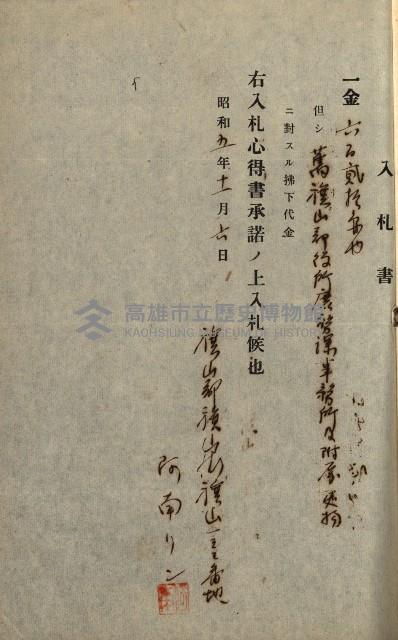 入札書
一金 六百貳拾五円也
但シ 舊旗山郡役所庶務課事務所及附属建物
ニ對スル拂下代金
右入札心得書承諾ノ上入札候也
昭和五年十一月六日
旗山郡旗山街旗山 番地
阿南リン
高雄市立歷史博物館
KAOHSIUNG MUSEUM OF HISTORY